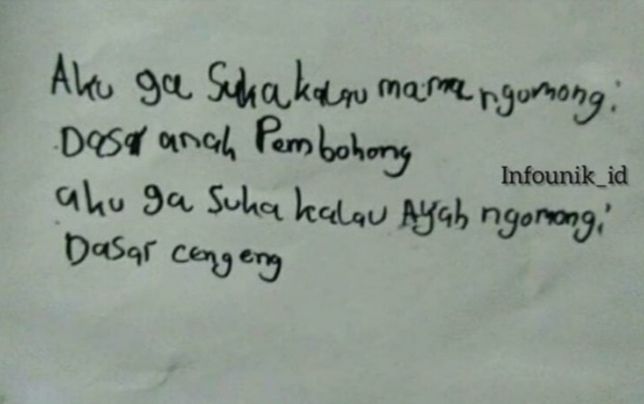 Aku ga Suka kalau mama ngomong:
Dasar anak Pembohong
Infounik_id
aku ga suka kalau Ayah ngomong:
Dasar cengeng